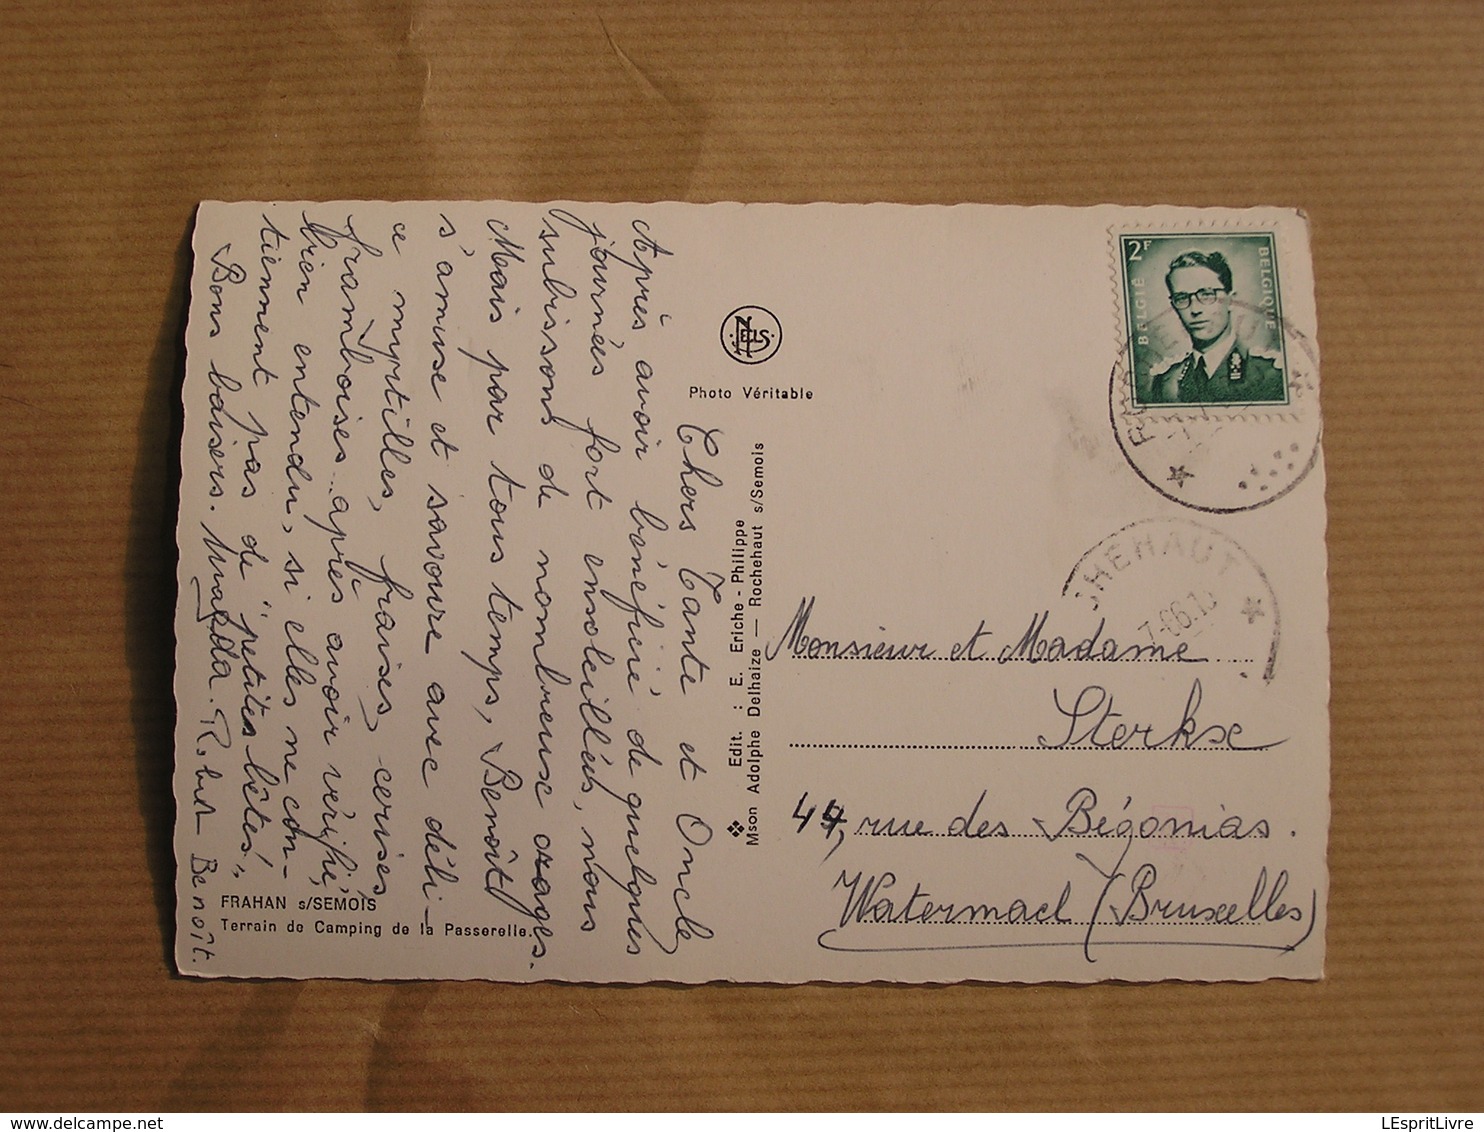 Chers Tante et Oncle
Après avoir bénéficié de quelques
journées fort ensoleillées, nous
subissons de nombreux orages.
Mais par tous temps, Benoît
s'amuse et savoure avec déli-
ce myrtilles, fraises, cerises
framboises.. après avoir vérifié,
bien entendu, si elles ne con-
tiennent pas de "petites bêtes".
Bons baisers. Magda. Robert Benoît.
FRAHAN s/SEMOIS
Terrain de Camping de la Passerelle.
NELS
Photo Véritable
Edit. : E. Eriche - Philippe
Mson Adolphe Delhaize — Rochehaut s/Semois
2F
BELGIË
BELGIQUE
CHEHAUT
Monsieur et Madame
Sterkse
44, rue des Bégonias.
Watermael (Bruxelles)
LEspritLivre